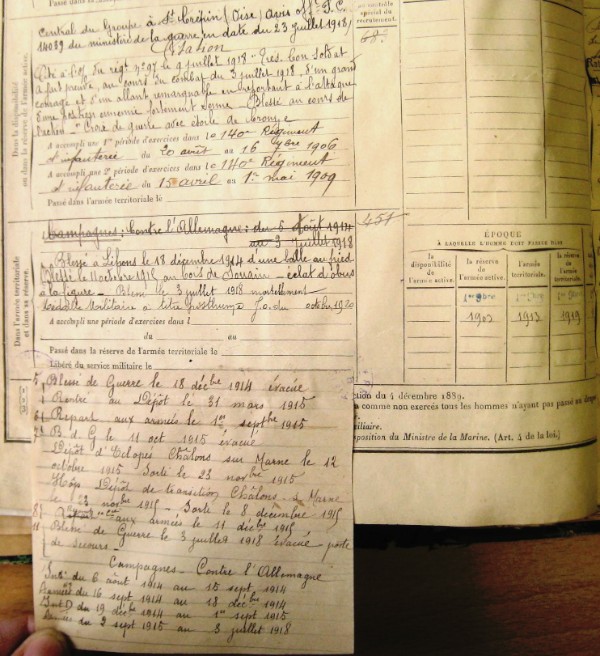 Central du Groupe à St Crépin (Oise) Avis off. S.C.
14089 du ministre de la guerre en date du 23 juillet 1918)
Citation
Cité à l'O/ du régt n° 97 le 9 juillet 1918 - Très bon soldat
a fait preuve, au cours du combat du 3 juillet 1918, d'un grand
courage et d'un allant remarquable en se portant à l'attaque
d'une position ennemie fortement Blessé au cours de
l'action - Croix de guerre avec étoile de bronze
A accompli une 1re période d'exercices dans le 140e Régiment
d'infanterie du 20 août au 16 7bre 1906
A accompli une 2e période d'exercices dans le 140e Régiment
d'infanterie du 15 avril au 1er mai 1909
Passé dans l'armée territoriale le
Dans la disponibilité
ou dans la réserve de l'armée active.
spécial du
recrutement.
68.
Campagnes: Contre l'Allemagne: du 6 Août 1914
au 3 Juillet 1918
Blessé à Lihons le 18 décembre 1914 d'une balle au pied
Blessé le 11 octobre 1915 au bois de Souain - éclat d'obus
à la figure - Blessé le 3 juillet 1918 mortellement
Médaille Militaire à titre posthume J.O. du octobre 1920
A accompli une période d'exercices dans l
du au
Passé dans la réserve de l'armée territoriale le
Libéré du service militaire le
Dans l'armée territoriale
et dans sa réserve.
451
ÉPOQUE
À LAQUELLE L'HOMME DOIT PASSER DANS
la disponibilité de l'armée active.
la réserve de l'armée active.
l'armée territoriale.
la réserve de l'armée territoriale.
1903 1913 1919
ction du 4 décembre 1889.
comme non exercés tous les hommes n'ayant pas passé
ilitaire.
sposition du Ministre de la Marine. (Art. 4 de la loi.)
Blessé de Guerre le 18 décbre 1914 évacué
Rentré au Dépôt le 31 mars 1915
Repart aux armées le 1er septbre 1915
B d G le 11 oct 1915 évacué
Dépôt d'Eclopés Châlons sur Marne le 12
octobre 1915 Sorti le 23 novbre 1915
Hôp Dépôt de transition Châlons s Marne
le 23 novbre 1915 - Sorti le 8 décembre 1915
aux armées le 11 décbre 1915
Blessé de Guerre le 3 juillet 1918 évacué poste
de secours -
Campagnes - Contre l'Allemagne
Intr du 6 août 1914 au 15 sept 1914
Armées du 16 sept 1914 au 18 décbre 1914
Int D du 19 décbre 1914 au 1er sept 1915
Armées du 2 sept 1915 au 3 juillet 1918